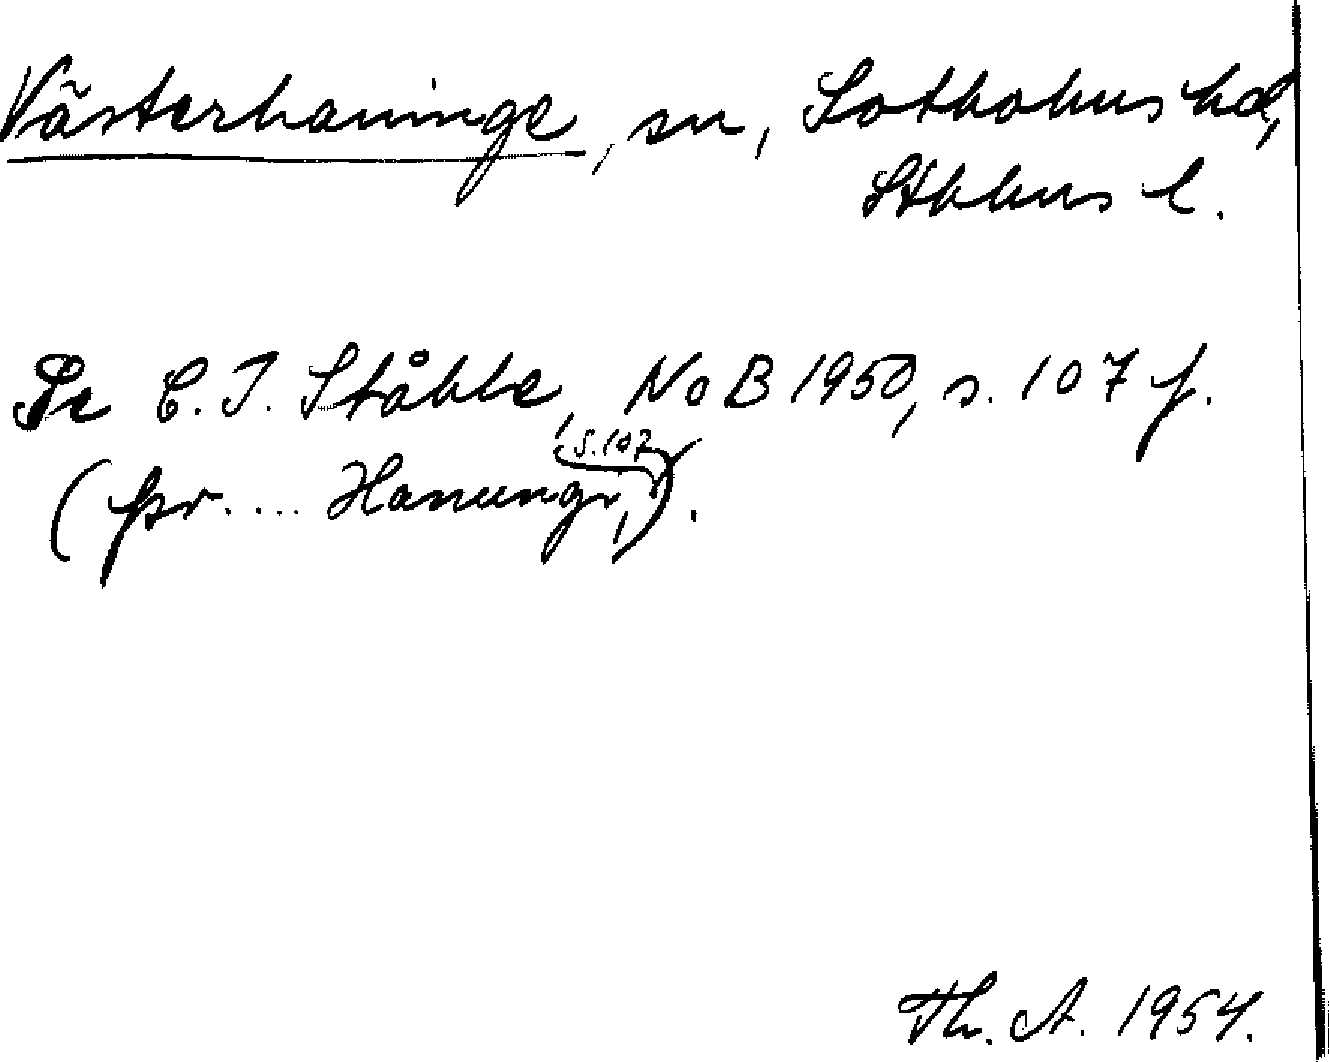 Västerhaninge, sn, Sotholms hd,
Sthlms l.
Se C. I. Ståhle, NoB 1950, s. 107 f.
(þer .... Hanungi, s. 107).
Th. A. 1954.